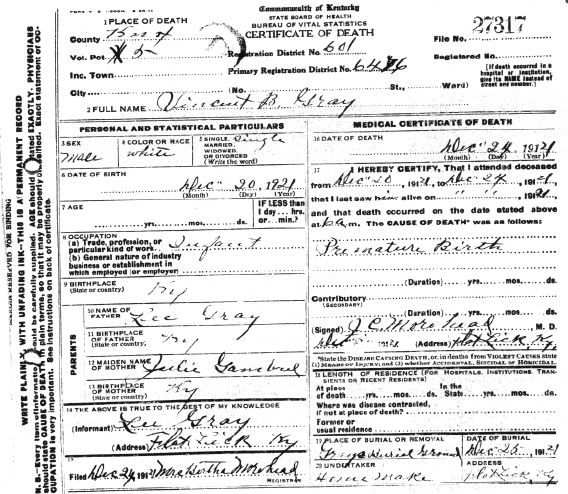 Commonwealth of Kentucky
STATE BOARD OF HEALTH
BUREAU OF VITAL STATISTICS
CERTIFICATE OF DEATH
27317
1 PLACE OF DEATH
County Knox
Vot. Pct 5
Inc. Town
City
Registration District No. 601
Primary Registration District No. 6476
(No. St., Ward)
File No.
Registered No.
(If death occurred in a hospital or institution, give its NAME instead of street and number.)
2 FULL NAME Vincent B. Gray
PERSONAL AND STATISTICAL PARTICULARS
3 SEX male
4 COLOR OR RACE white
5 SINGLE, MARRIED, WIDOWED, OR DIVORCED (Write the word) single
6 DATE OF BIRTH Dec 20, 1921
(Month) (Day) (Year)
7 AGE
yrs. mos. ds.
IF LESS than 1 day... hrs. or... min.?
8 OCCUPATION
(a) Trade, profession, or particular kind of work Infant
(b) General nature of industry business or establishment in which employed (or employer)
9 BIRTHPLACE (State or country) Ky
PARENTS
10 NAME OF FATHER Lee Gray
11 BIRTHPLACE OF FATHER (State or country) Ky
12 MAIDEN NAME OF MOTHER Julie
13 BIRTHPLACE OF MOTHER (State or country) Ky
14 THE ABOVE IS TRUE TO THE BEST OF MY KNOWLEDGE
(Informant) Lee Gray
(Address) Flat Lick Ky
15
Filed Dec 24, 1921 Mrs Bertha Morehead
REGISTRAR
MEDICAL CERTIFICATE OF DEATH
16 DATE OF DEATH Dec 24 1921
(Month) (Day) (Year)
17 I HEREBY CERTIFY, That I attended deceased
from Dec 20, 1921, to Dec 24, 1921,
that I last saw him alive on " " 1921,
and that death occurred on the date stated above
at 6 a m. The CAUSE OF DEATH* was as follows:
Premature Birth
(Duration) yrs. mos. ds.
Contributory (SECONDARY)
(Duration) yrs. mos. ds.
(Signed) J.C. Morehead, M. D.
1921 (Address) Flat Lick Ky.
*State the DISEASE CAUSING DEATH, or, in deaths from VIOLENT CAUSES state (1) MEANS OF INJURY; and (2) whether ACCIDENTAL, SUICIDAL or HOMICIDAL.
18 LENGTH OF RESIDENCE (FOR HOSPITALS, INSTITUTIONS, TRANSIENTS OR RECENT RESIDENTS)
At place of death yrs. mos. ds. In the State yrs. mos. ds.
Where was disease contracted, if not at place of death?
Former or usual residence
19 PLACE OF BURIAL OR REMOVAL Burial Ground
DATE OF BURIAL Dec 25, 1921
20 UNDERTAKER Home Make
ADDRESS Flat Lick Ky
MARGIN RESERVED FOR BINDING
WRITE PLAINLY, WITH UNFADING INK—THIS IS A PERMANENT RECORD
N. B.—Every item of information should be carefully supplied. AGE should be stated EXACTLY. PHYSICIANS should state CAUSE OF DEATH in plain terms, so that it may be properly classified. Exact statement of OCCUPATION is very important. See instructions on back of certificate.